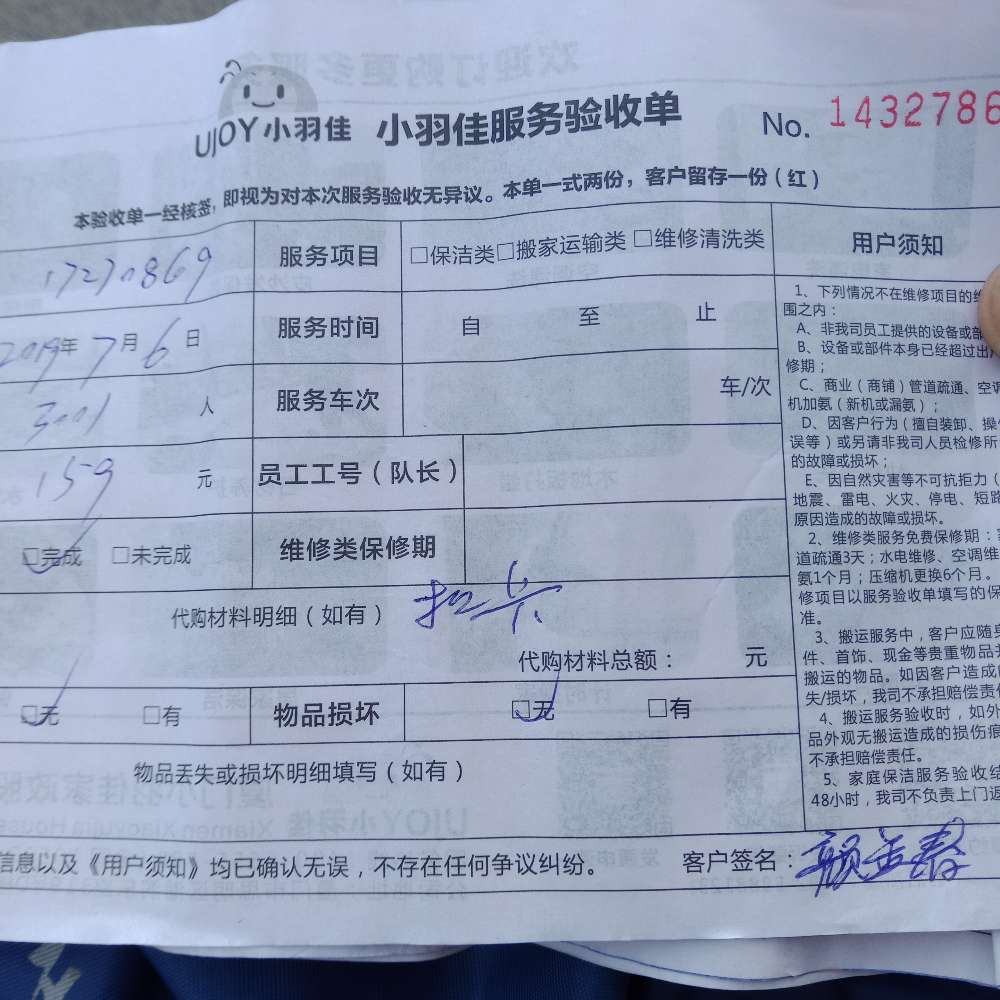 UJOY 小羽佳 小羽佳服务验收单 No. 1432786
本验收单一经核签，即视为对本次服务验收无异议。本单一式两份，客户留存一份（红）
17270869 服务项目 □保洁类□搬家运输类 □维修清洗类
2019年7月6日 服务时间 自 至 止
人 服务车次 车/次
159 元 员工工号（队长）
□完成 □未完成 维修类保修期
代购材料明细（如有） 扣卡
代购材料总额： 元
□无 □有 物品损坏 □无 □有
物品丢失或损坏明细填写（如有）
信息以及《用户须知》均已确认无误，不存在任何争议纠纷。 客户签名：
用户须知
1、下列情况不在维修项目的
围之内：
A、非我司员工提供的设备或
B、设备或部件本身已经超过出
修期；
C、商业（商铺）管道疏通、空调
机加氨（新机或漏氨）；
D、因客户行为（擅自装卸、操
误等）或另请非我司人员检修所
的故障或损坏；
E、因自然灾害等不可抗拒力（
地震、雷电、火灾、停电、短路
原因造成的故障或损坏。
2、维修类服务免费保修期：
道疏通3天；水电维修、空调维
氨1个月；压缩机更换6个月。
修项目以服务验收单填写的保
准。
3、搬运服务中，客户应随身
件、首饰、现金等贵重物品
搬运的物品。如因客户造成
失/损坏，我司不承担赔偿责任
4、搬运服务验收时，如外
品外观无搬运造成的损伤痕
不承担赔偿责任。
5、家庭保洁服务验收结
48小时，我司不负责上门返